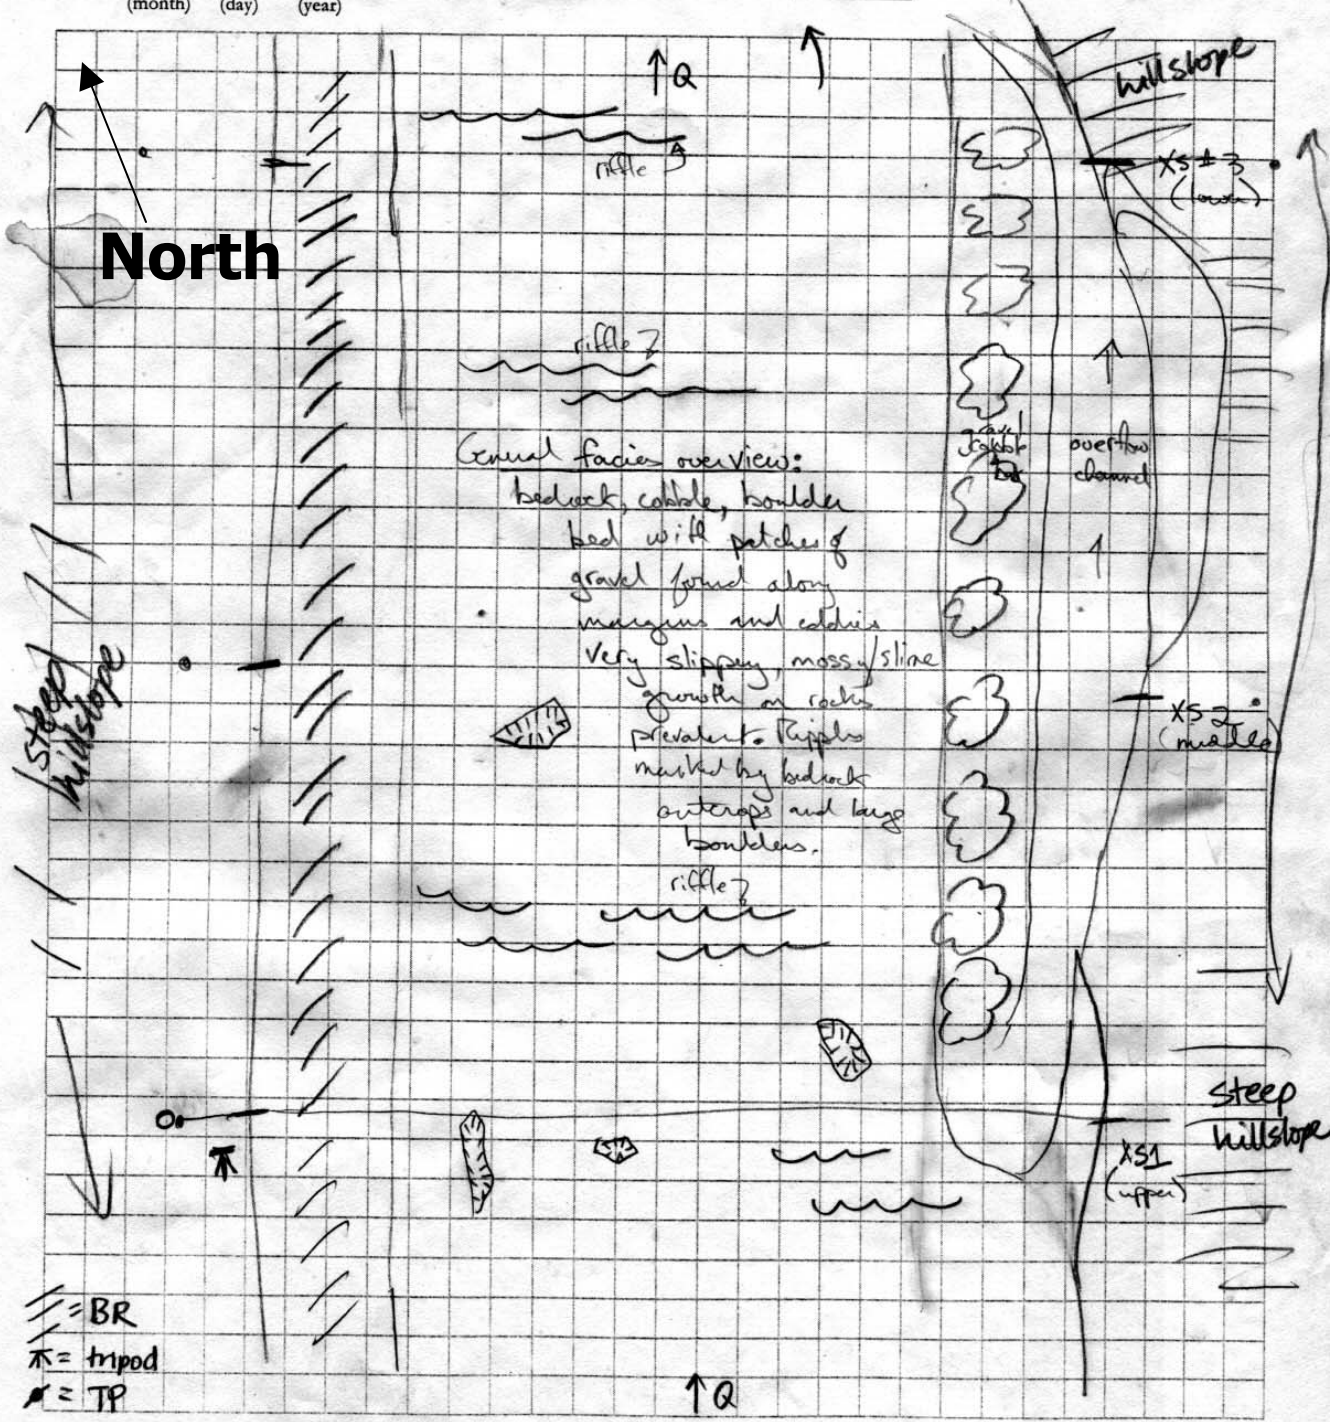 (month) (day) (year)
↑Q
hillslope
riffle
XS#3
(lower)
North
riffle
General facies overview:
bedrock, cobble, boulder
bed with patches of
gravel found along
margins and eddies
Very slippery, mossy/slime
growth on rocks
prevalent. Ripples
marked by bedrock
outcrops and large
boulders.
gravel
cobble
bar
overflow
channel
steep
hillslope
XS2
(middle)
riffle
steep
hillslope
XS1
(upper)
= BR
= tripod
= TP
↑Q